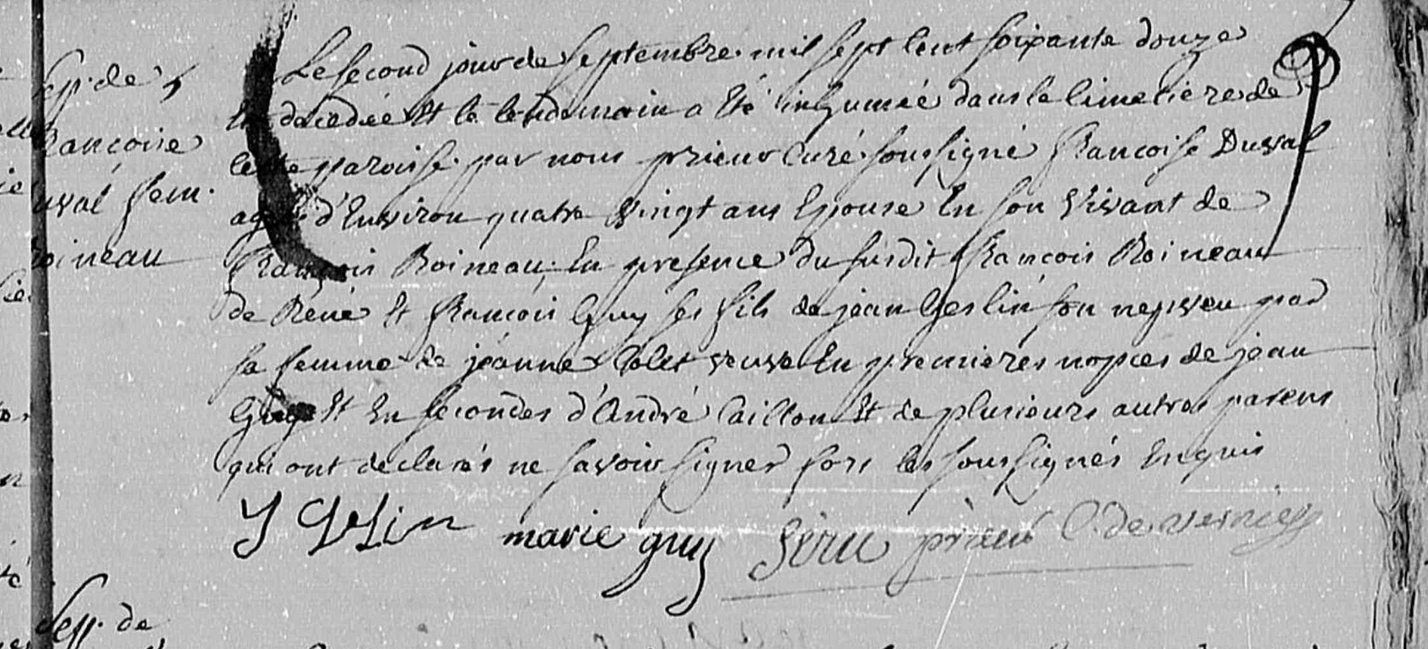 Sep. de
françoise
Duval fem.
Roineau
Le second jour de septembre mil sept cent soixante douze
est decedée et le lendemain a été inhumée dans le cimetiere de
cette paroisse par nous prieur curé soussigné françoise Duval
agée d'Environ quatre vingt ans Epouse En son vivant de
françois Roineau, En presence du susdit françois Roineau
de René et françois Guy ses fils de jean Geslin son nepveu par
sa femme de jeanne Colet veuve En premieres nopces de jean
Guy et En secondes d'André Caillon et de plusieurs autres parens
qui ont declarés ne savoir signer fors les soussignés Enquis
J Geslin marie guy prieur C. de
Sep. de